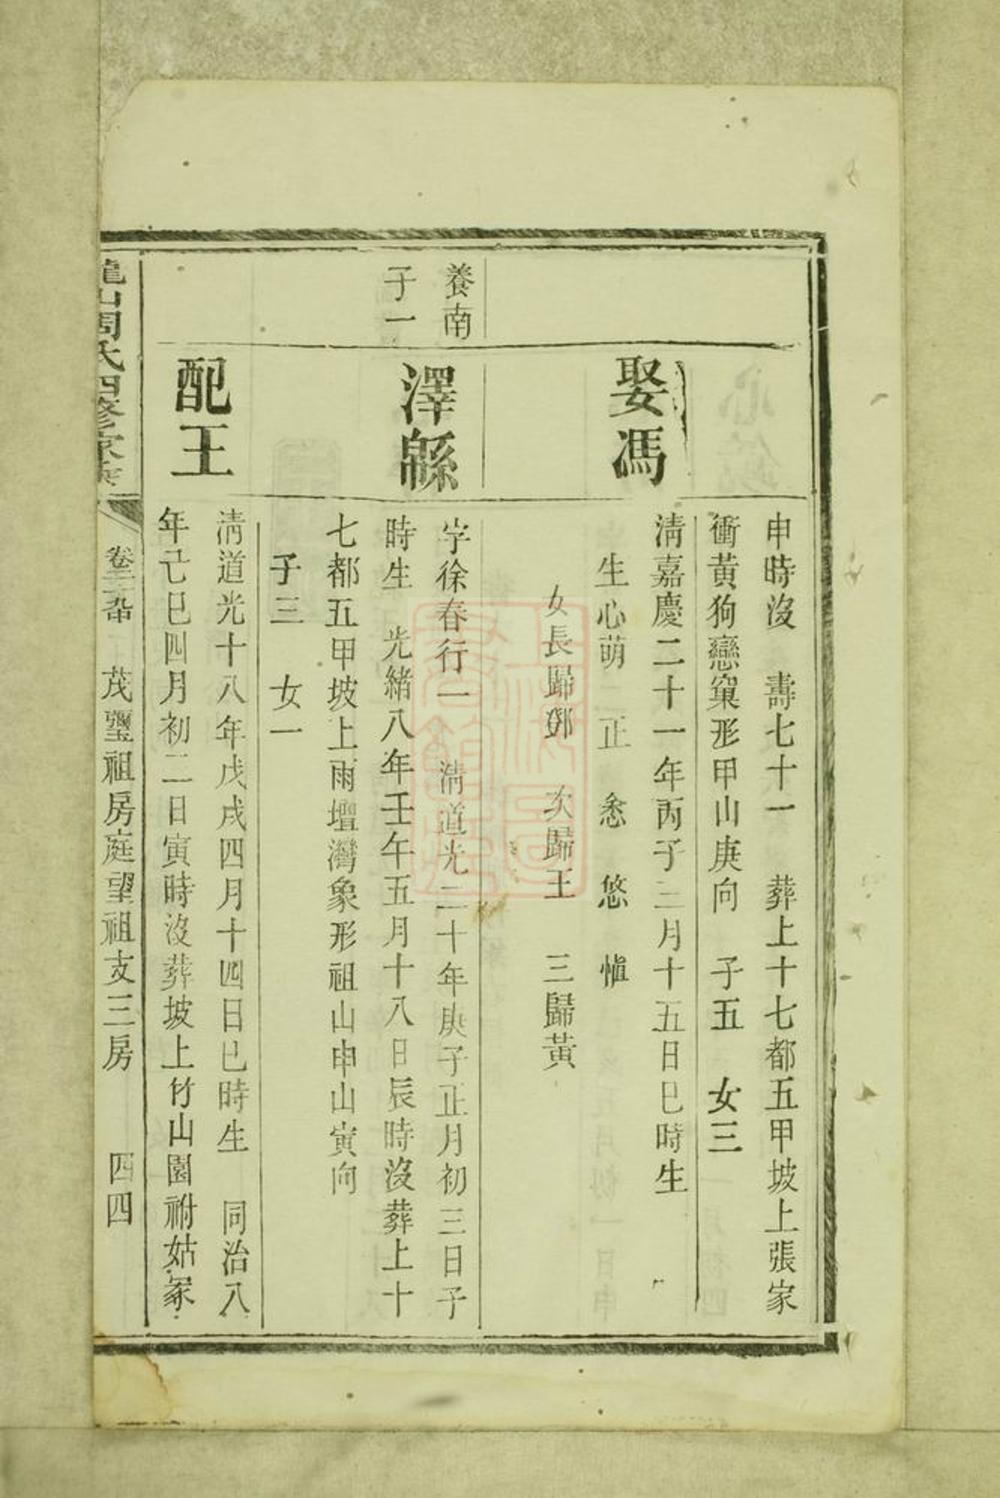 娶馮
申時沒　壽七十一　葬上十七都五甲坡上張家
衝黃狗戀窠形甲山庚向　子五　女三
淸嘉慶二十一年丙子三月十五日巳時生
生心萌　正　悆　悠　愼
女長歸鄧　次歸王　三歸黃
養南
子一
澤緜
字徐春行一　淸道光二十年庚子正月初三日子
時生　光緖八年壬午五月十八日辰時沒葬上十
七都五甲坡上雨壇灣象形祖山申山寅向
子三　女一
配王
淸道光十八年戊戌四月十四日巳時生　同治八
年己巳四月初二日寅時沒葬坡上竹山園祔姑冢
龍山周氏四修家
卷二 茂璽祖房庭望祖支三房　四四